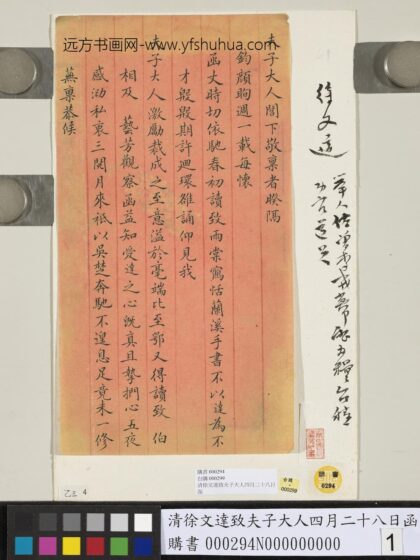 远方书画网-www.yfshuhua.com
夫子大人閣下敬稟者睽隔
鈞顏晌週一載每懷
函丈時切依馳春初讀致雨棠寫恬蘭溪手書不以達為不
才殷殷期許廻環雒誦仰見我
夫子大人激勵裁成之至意溢於毫端比至鄂又得讀致 伯
相及 藝芳觀察函益知愛達之心既真且摯捫心五夜
感泐私衷三閱月來祇以吳楚奔馳不遑息足竟未一修
蕪稟恭候
徐文達
購書000294
台購000299
清徐文達致夫子大人四月二十八日函
台購
000299
購書
0294
乙三 4
清徐文達致夫子大人四月二十八日函
購書 000294N000000000
1